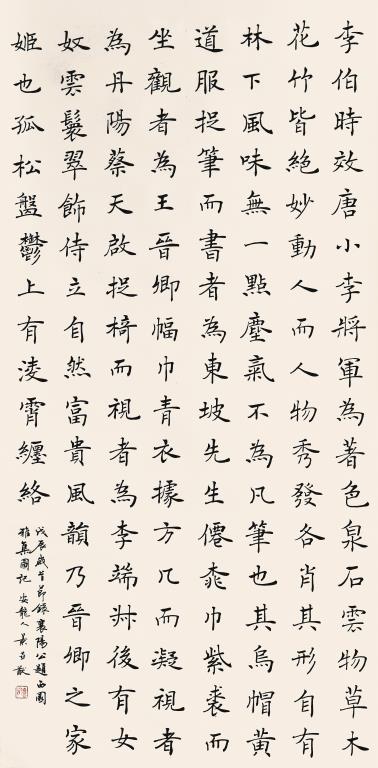 李伯時效唐小李將軍為著色泉石雲物草木
花竹皆絕妙動人而人物秀發各肖其形自有
林下風味無一點塵氣不為凡筆也其烏帽黃
道服捉筆而書者為東坡先生僊桃巾紫裘而
坐觀者為王晉卿幅巾青衣據方几而凝視者
為丹陽蔡天啟捉椅而視者為李端叔後有女
奴雲鬟翠飾侍立自然富貴風韻乃晉卿之家
姬也孤松盤鬱上有淩霄纏絡
戊辰歲首節錄襄陽公題西園
雅集圖記 安龍人